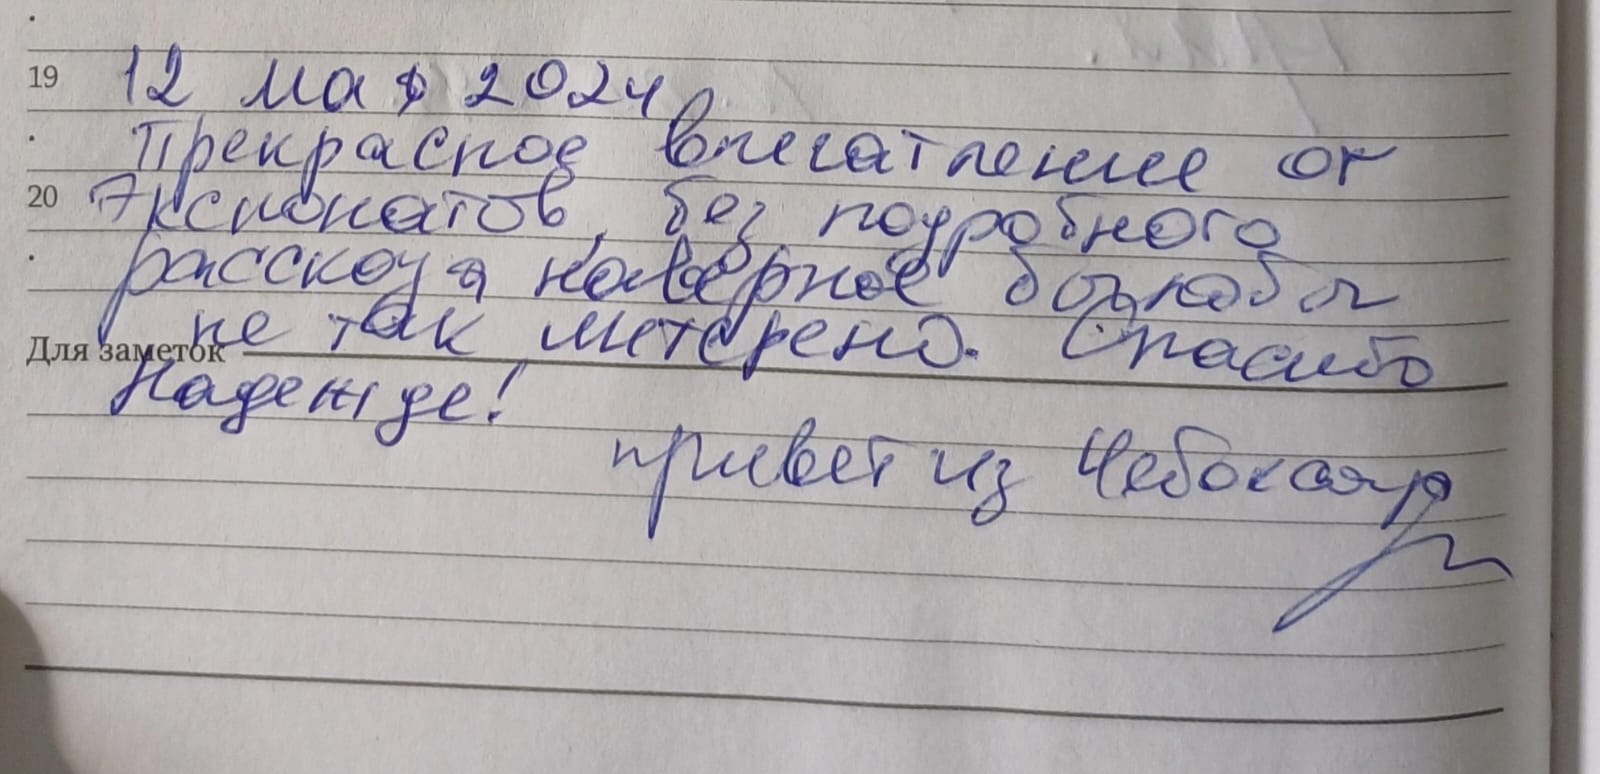 19 12 мая 2024
Прекрасное впечатление от
20 Экспонатов, без подробного
рассказа наверное было бы
не так интерено. Спасибо
Для заметок
Надежде!
привет из Чебоксар